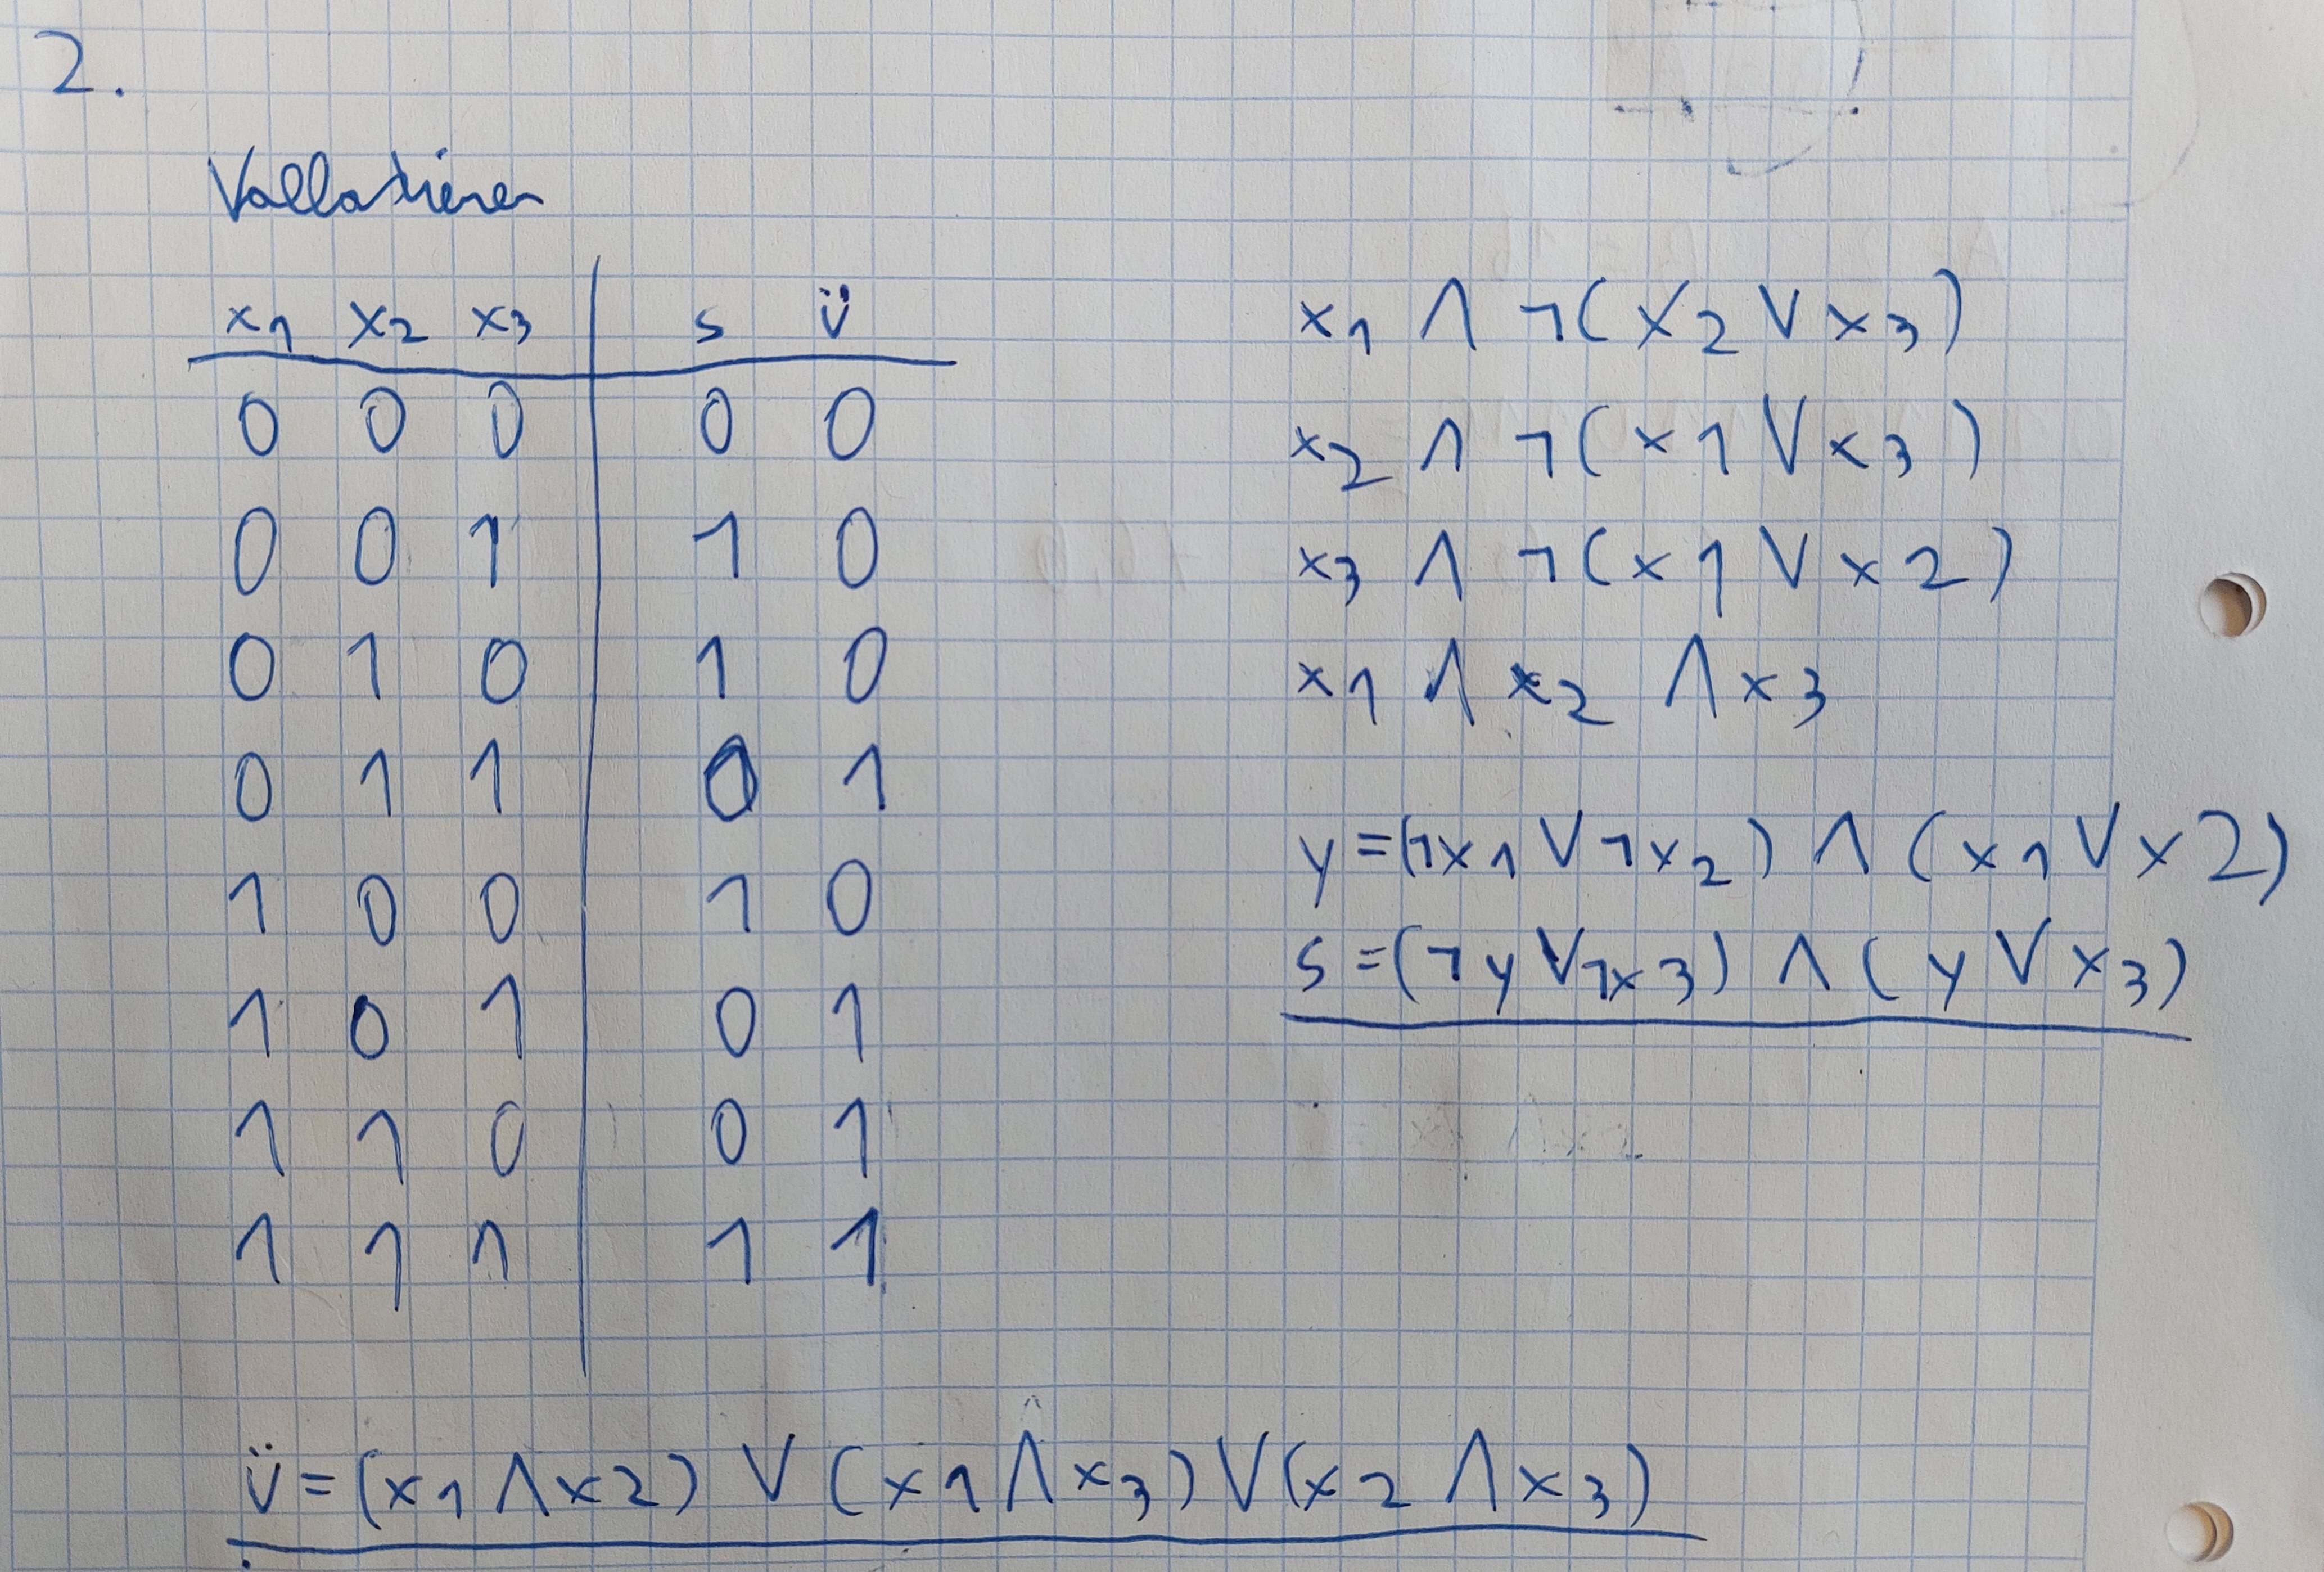 2.
Volladdierer
x1 x2 x3 s ü
0 0 0 0 0
0 0 1 1 0
0 1 0 1 0
0 1 1 0 1
1 0 0 1 0
1 0 1 0 1
1 1 0 0 1
1 1 1 1 1
x1 ∧ ¬(x2 ∨ x3)
x2 ∧ ¬(x1 ∨ x3)
x3 ∧ ¬(x1 ∨ x2)
x1 ∧ x2 ∧ x3
y = (¬x1 ∨ ¬x2) ∧ (x1 ∨ x2)
s = (¬y ∨ ¬x3) ∧ (y ∨ x3)
ü = (x1 ∧ x2) ∨ (x1 ∧ x3) ∨ (x2 ∧ x3)